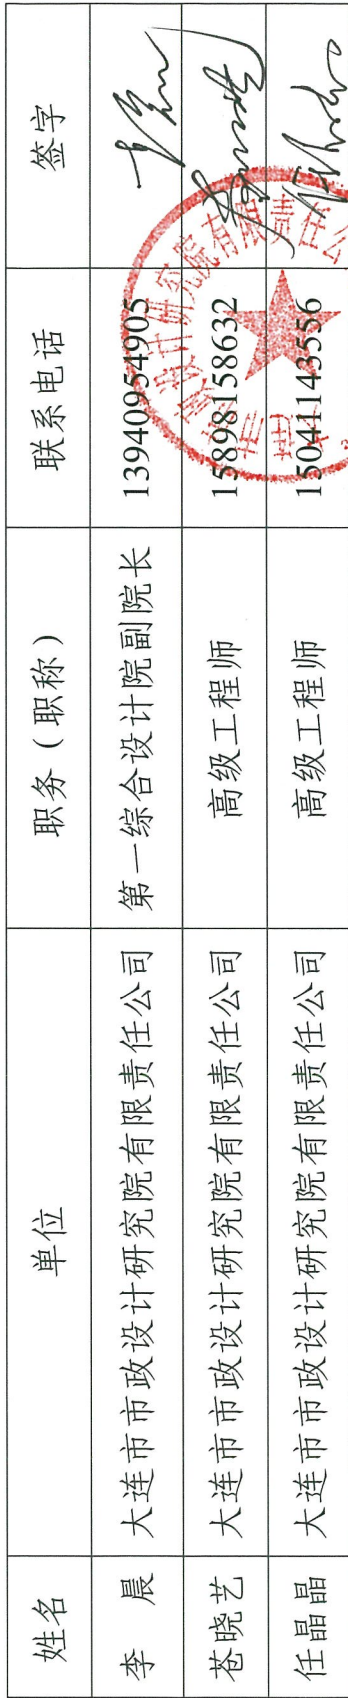 姓名 单位 职务（职称） 联系电话 签字
李 晨 大连市市政设计研究院有限责任公司 第一综合设计院副院长 13940954905
苍晓艺 大连市市政设计研究院有限责任公司 高级工程师 15898158632
任晶晶 大连市市政设计研究院有限责任公司 高级工程师 15041143556
政设计研究院有限责任公